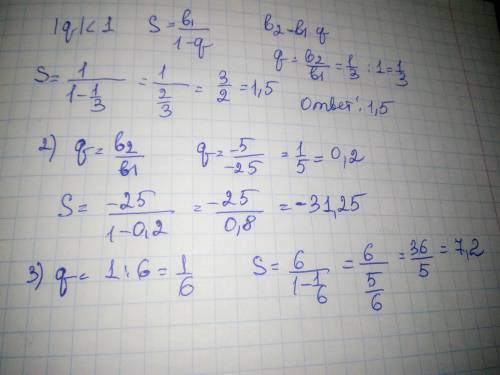 |q|<1 S = b₁/(1-q) b₂=b₁ q
q = b₂/b₁ = 1/3 : 1 = 1/3
S = 1/(1-1/3) = 1/(2/3) = 3/2 = 1,5
Ответ: 1,5
2) q = b₂/b₁ q = -5/-25 = 1/5 = 0,2
S = -25/(1-0,2) = -25/0,8 = -31,25
3) q = 1:6 = 1/6 S = 6/(1-1/6) = 6/(5/6) = 36/5 = 7,2